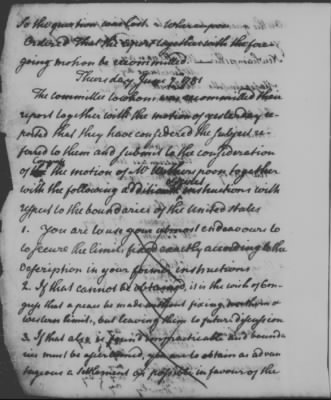 So the question was lost. Whereupon
Ordered That the report together with the fore
going motion be recommitted.
Thursday June 7. 1781
The committee to whom was recommitted their
report together with the motion of yesterday re
ported that they have considered the subject re
ferred to them and submit to the consideration
of Congress the motion of Mr Witherspoon together
with the following additional instructions with
respect to the boundaries of the United States
1. You are to use your utmost endeavours to
secure the limits fixed exactly according to the
description in your former instructions
2. If that cannot be obtained, it is the wish of Con
gress that a peace be made without fixing northern &
western limits, but leaving them to future discussion
3. If that also is found impracticable and bounda
ries must be ascertained, you are to obtain as advan
tageous a settlement as possible in favour of the